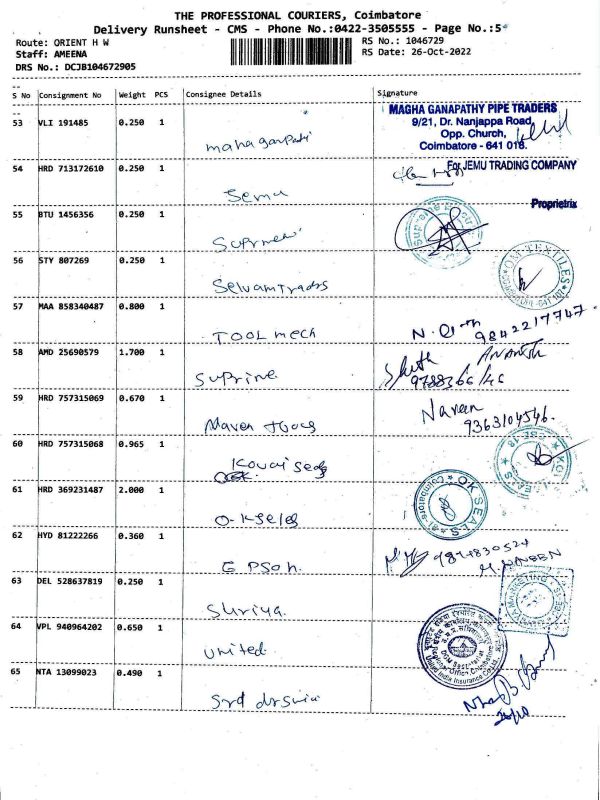 THE PROFESSIONAL COURIERS, Coimbatore
Delivery Runsheet - CMS - Phone No.:0422-3505555 - Page No.:5
Route: ORIENT H W
RS No.: 1046729
Staff: AMEENA
RS Date: 26-Oct-2022
DRS No.: DCJB104672905
S No Consignment No Weight PCS Consignee Details Signature
53 VLI 191485 0.250 1
MAGHA GANAPATHY PIPE TRADERS
9/21, Dr. Nanjappa Road,
Opp. Church,
Coimbatore - 641 018.
maha ganpathi
54 HRD 713172610 0.250 1
For JEMU TRADING COMPANY
Proprietrix
55 BTU 1456356 0.250 1
56 STY 807269 0.250 1
OM TEXTILES
Selvam Traders
57 MAA 858340487 0.800 1
TOOL mech
9842217747
58 AMD 25690579 1.700 1
Suprime
59 HRD 757315069 0.670 1
Naveen
9363104546.
60 HRD 757315068 0.965 1
Kovai seals
61 HRD 369231487 2.000 1
OK SEALS
O-K seals
62 HYD 81222266 0.360 1
9894830524
63 DEL 528637819 0.250 1
MARKETING
Suriya.
64 VPL 940964202 0.650 1
United India Insurance Co. Ltd.
United
65 NTA 13099023 0.490 1